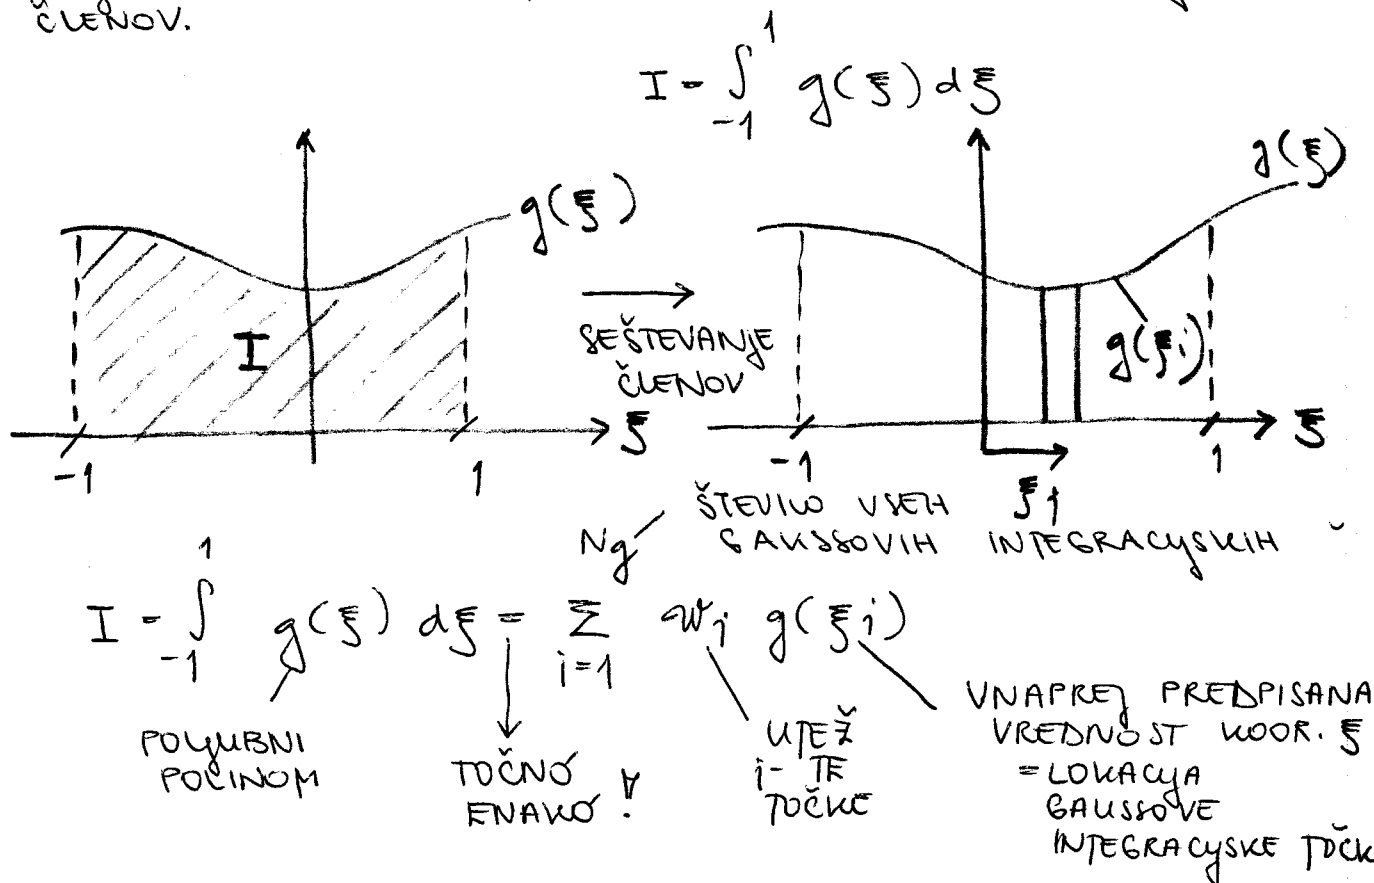 ČLENOV.
I = ∫_{-1}^{1} g(ξ) dξ
g(ξ)
g(ξ)
I
SEŠTEVANJE
ČLENOV
g(ξi)
ξ
ξ
-1
1
-1
1
ξi
Ng
ŠTEVILO VSEH
GAUSSOVIH INTEGRACIJSKIH
I = ∫_{-1}^{1} g(ξ) dξ = Σ_{i=1} wi g(ξi)
POLJUBNI
POLINOM
TOČNO
ENAKO!
UTEŽ
i-TE
TOČKE
VNAPREJ PREDPISANA
VREDNOST KOOR. ξ
= LOKACIJA
GAUSSOVE
INTEGRACIJSKE TOČK